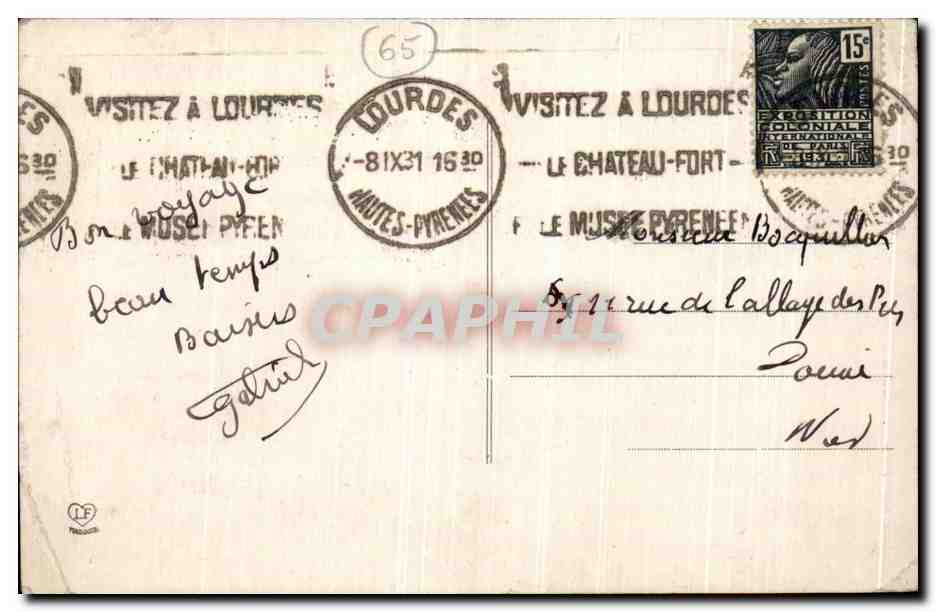 65
VISITEZ À LOURDES
LE CHATEAU-FOR
LE MUSEE PYREN
LOURDES
-8 IX 31 16 30
HAUTES-PYRENEES
VISITEZ À LOURDES
LE CHATEAU-FORT
LE MUSEE PYRENEEN
15c
POSTES
EXPOSITION
COLONIALE
INTERNATIONALE
DE PARIS
1931
Bon voyage
beau temps
Baisers
Gabriel
Monsieur Bocquillon
rue de l'abbaye des Prés
Douai
Nord
CPAPHIL
LF
TOULOUSE